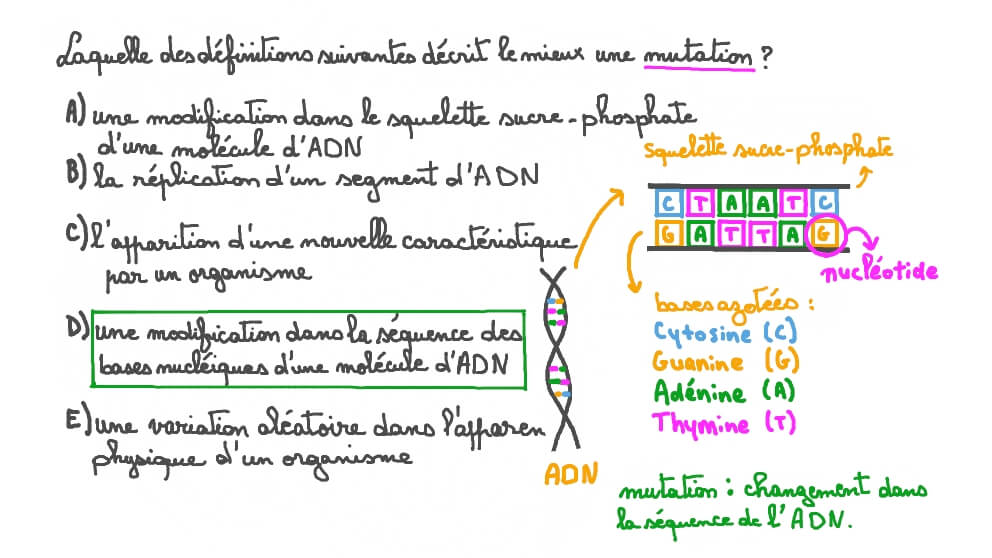 Laquelle des définitions suivantes décrit le mieux une mutation ?
A) une modification dans le squelette sucre-phosphate
d'une molécule d'ADN
B) la réplication d'un segment d'ADN
C) l'apparition d'une nouvelle caractéristique
par un organisme
D) une modification dans la séquence des
bases nucléiques d'une molécule d'ADN
E) une variation aléatoire dans l'apparen
physique d'un organisme
ADN
squelette sucre-phosphate
C T A A T C
G A T T A G
nucléotide
bases azotées :
Cytosine (C)
Guanine (G)
Adénine (A)
Thymine (T)
mutation : changement dans
la séquence de l'ADN.